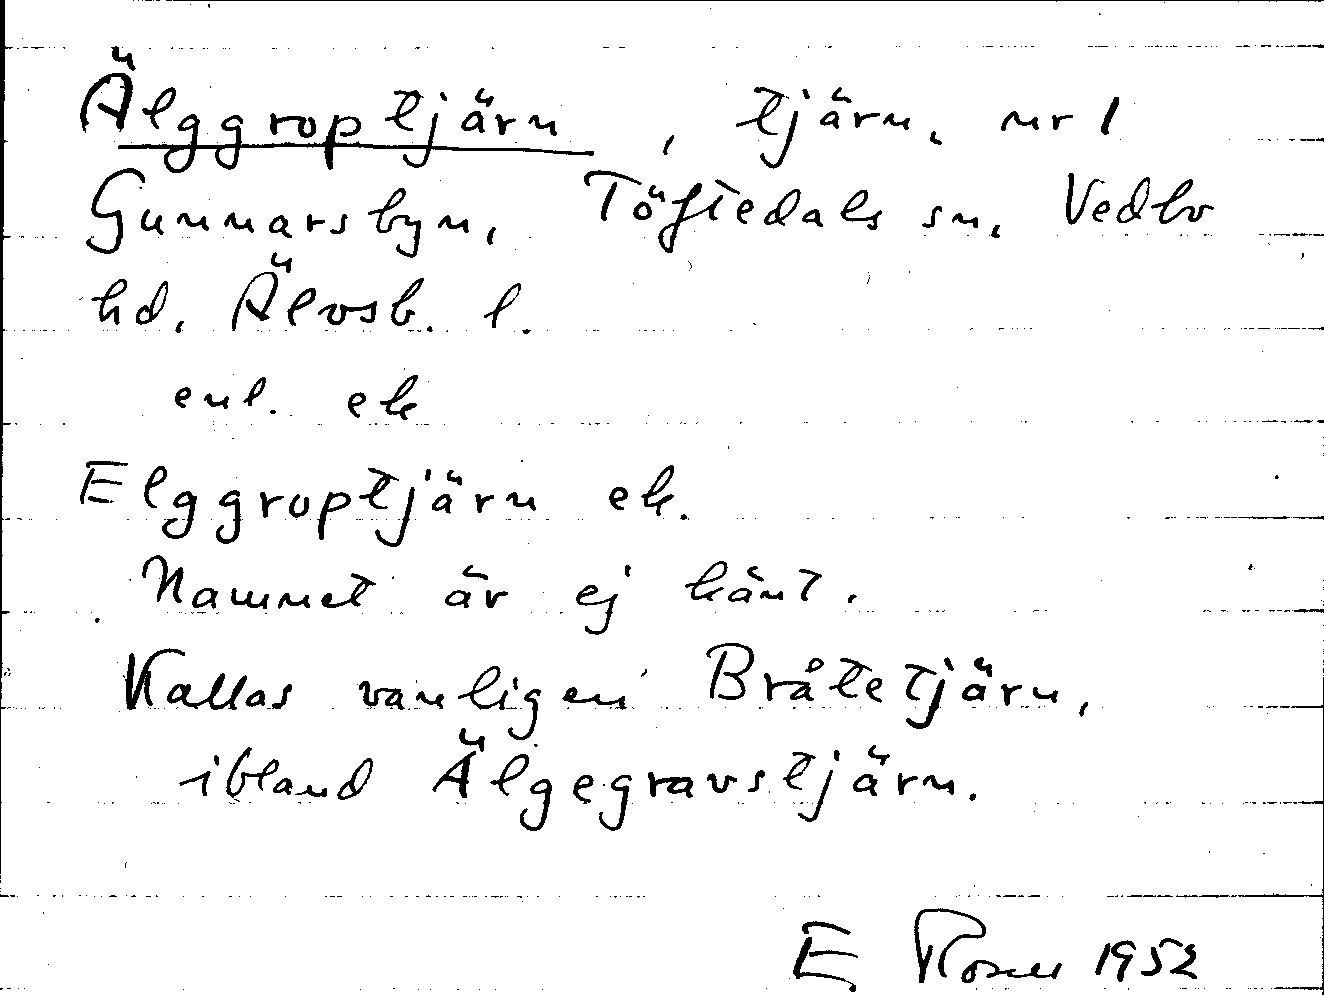 Älggroptjärn, tjärn, nr 1
Gunnarsbyn, Töftedals sn, Vedbo
hd, Älvsb. l.
enl. ek
Elggroptjärn ek.
Namnet är ej känt.
Kallas vanligen Bråtetjärn,
ibland Älgegravstjärn.
E. Rosen 1952